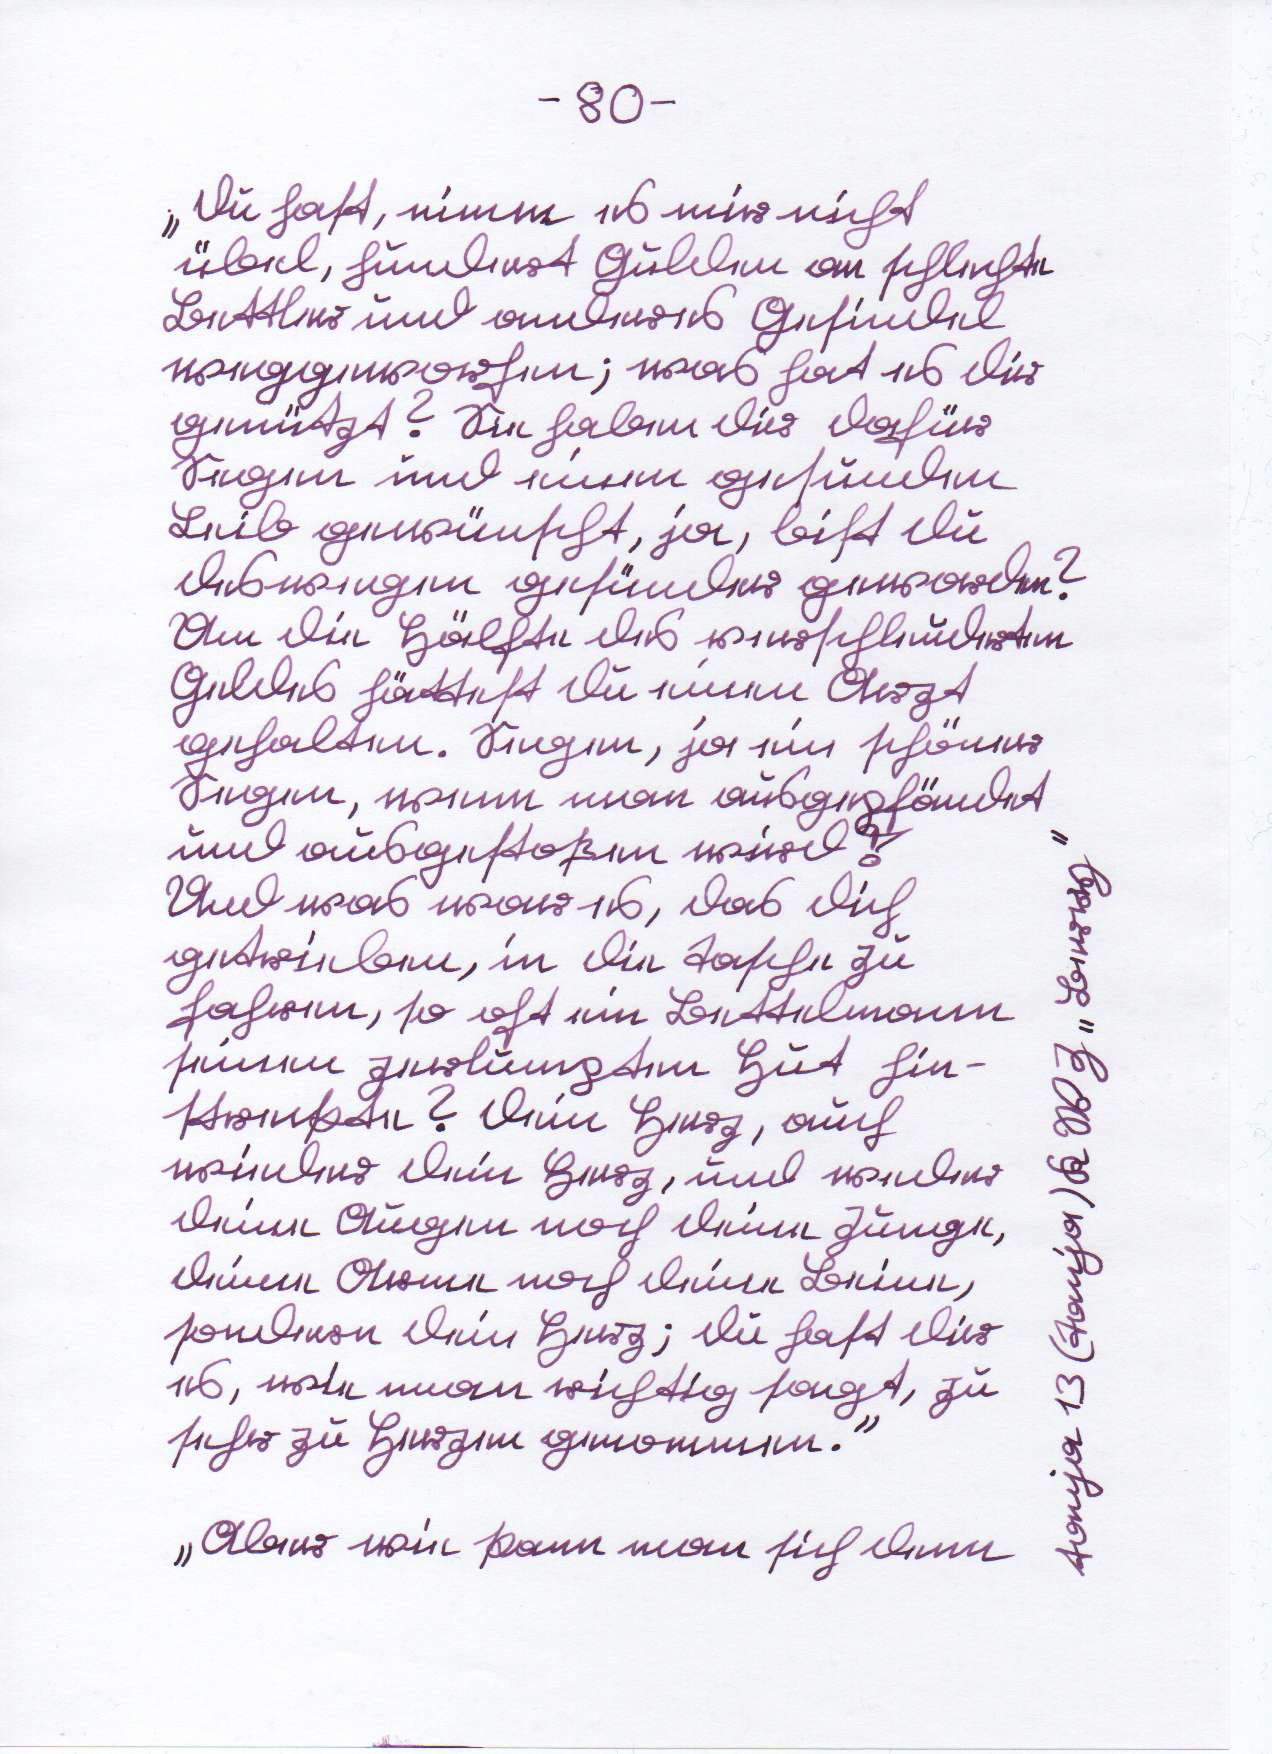 - 80 -
„Du hast, nimm es mir nicht
übel, hundert Gulden an schlechte
Bettler und anderes Gesindel
weggeworfen; was hat es dir
genützt? Sie haben dir dafür
Segen und einen gesunden
Leib gewünscht, ja, bist du
deswegen gesünder geworden?
Um die Hälfte des verschleuderten
Geldes hättest du einen Arzt
gehalten. Segen, ja ein schöner
Segen, wenn man ausgepfändet
und ausgestoßen wird?
Und was war es, das dich
getrieben, in die Tasche zu
fahren, so oft ein Bettelmann
seinen zerlumpten Hut hin-
streckte? Dein Herz, auch
wieder dein Herz, und weder
deine Augen noch deine Zunge,
deine Arme noch deine Beine,
sondern dein Herz; du hast dir
es, wie man richtig sagt, zu
sehr zu Herzen genommen.”
„Aber wie kann man sich denn
Tonja 13 (Tanja)